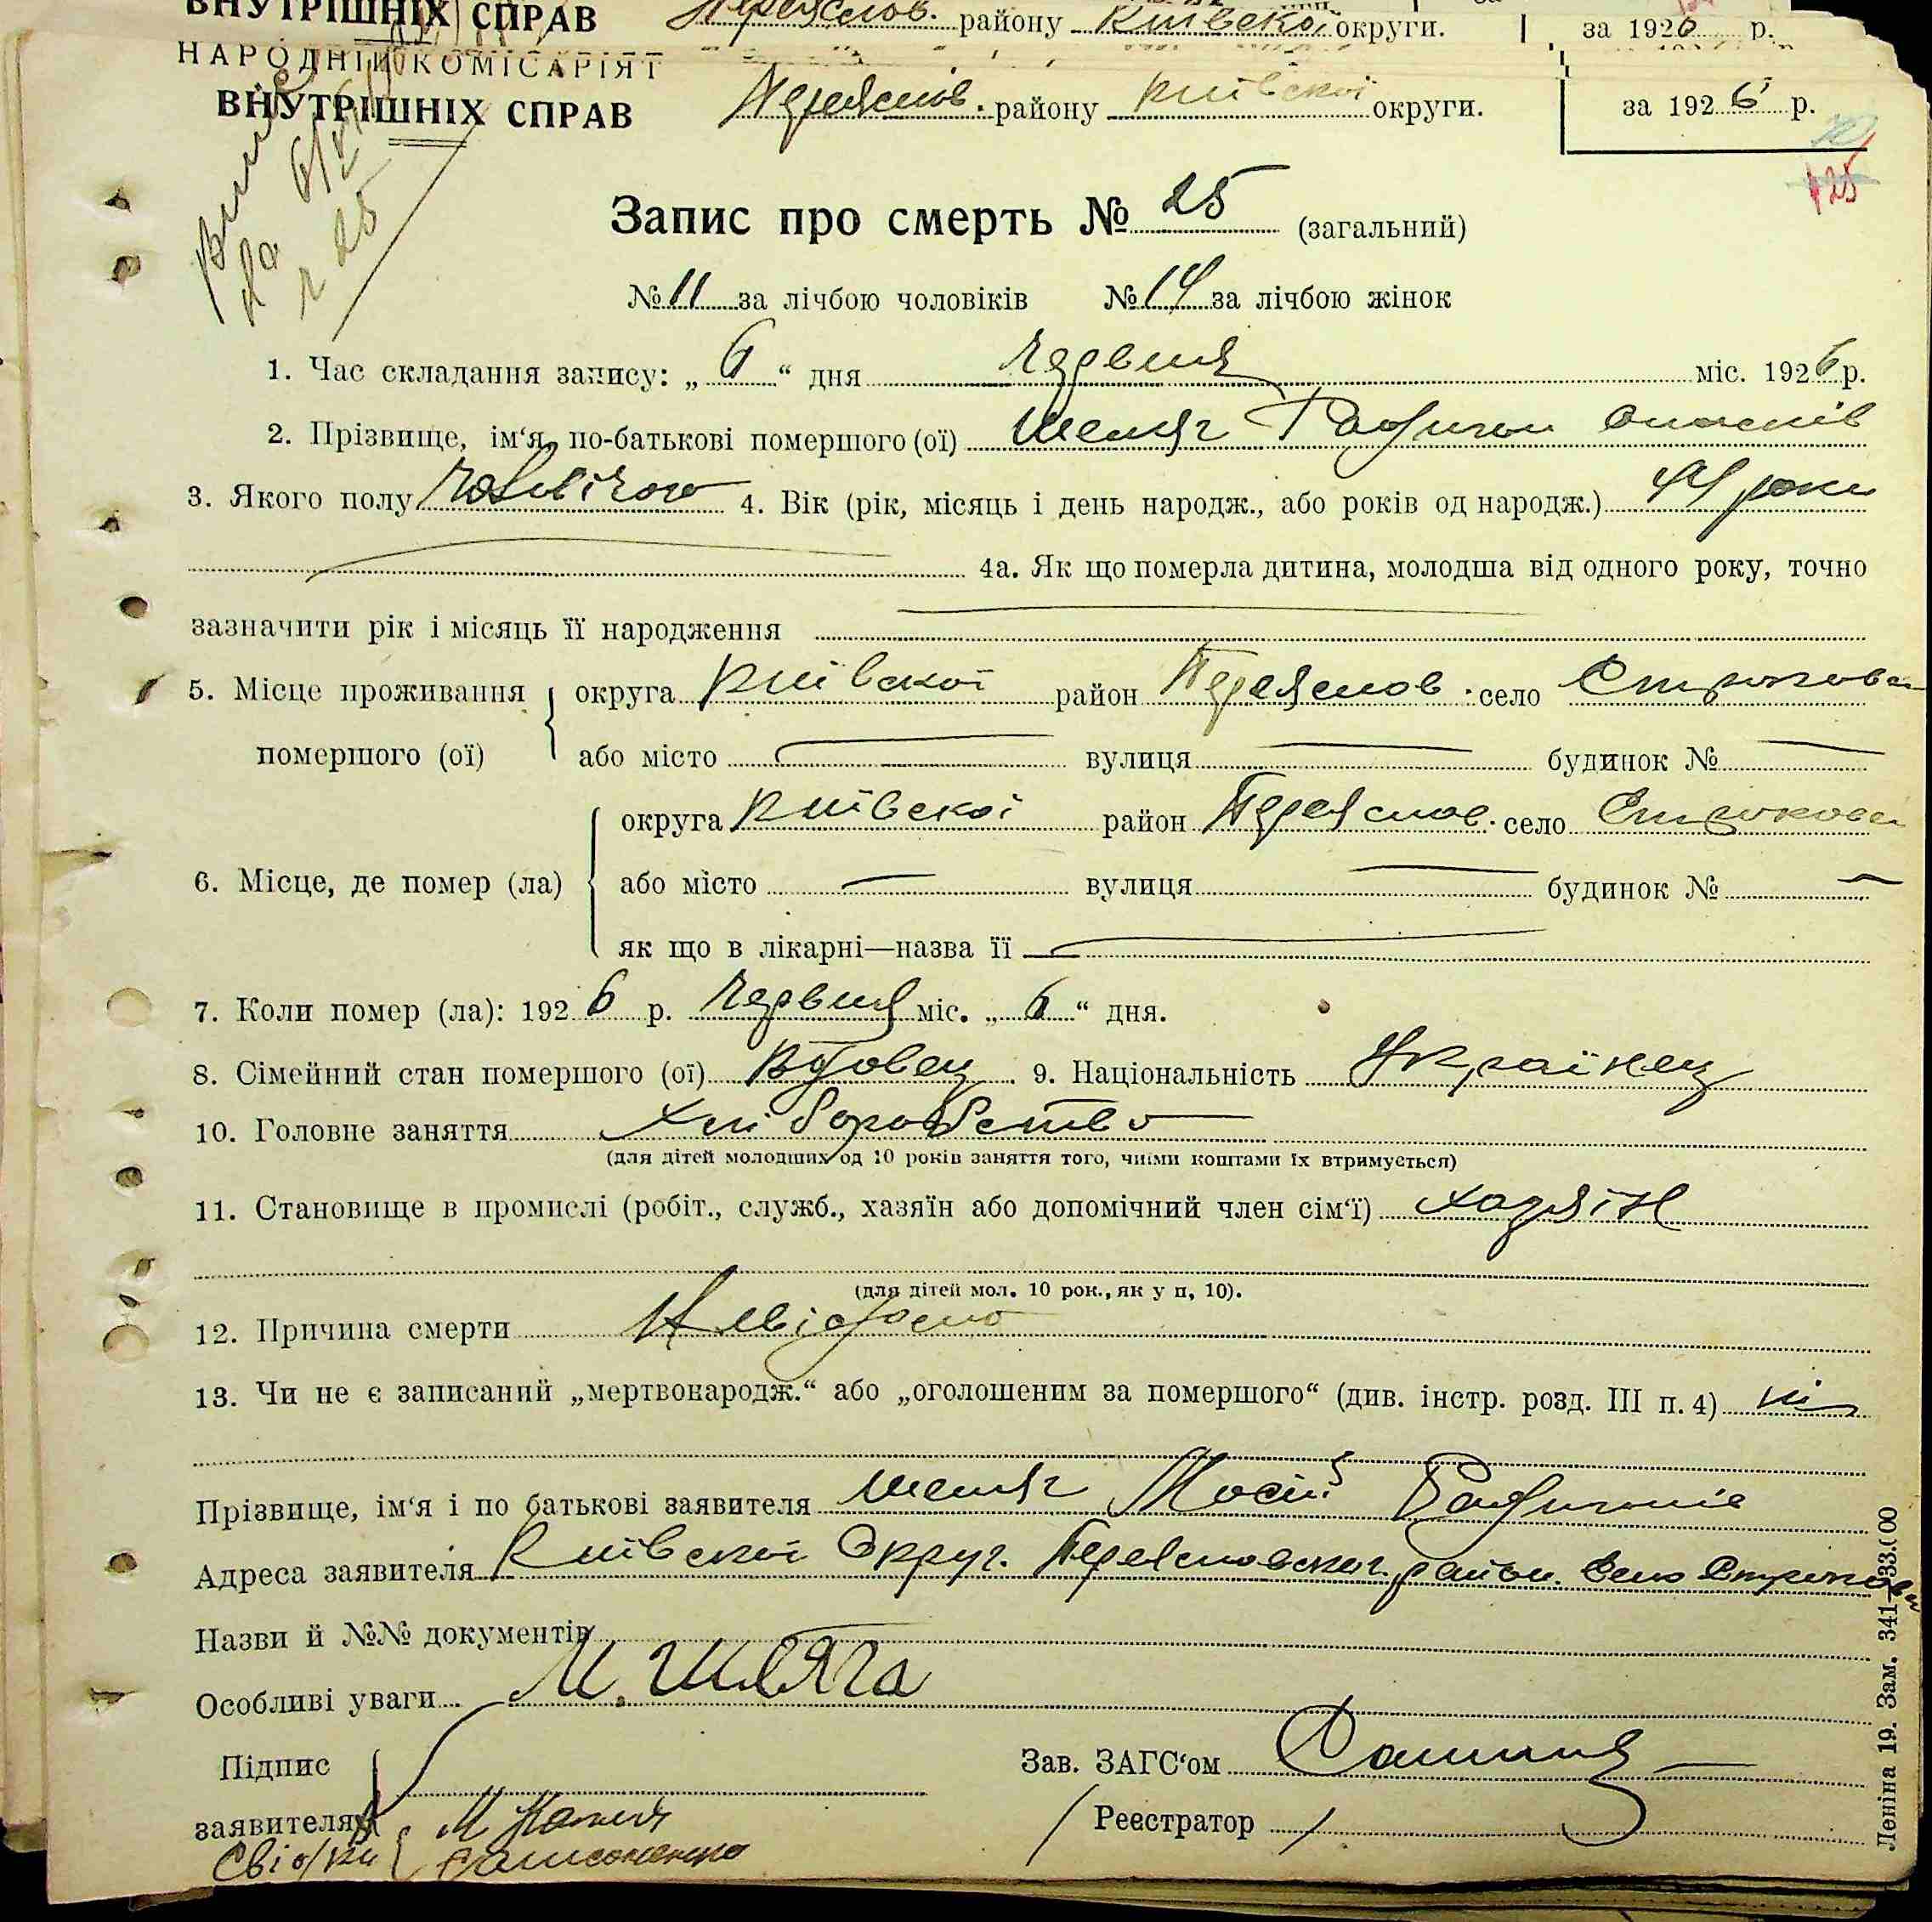 ВНУТРІШНІХ СПРАВ Переяслов. району Київскої округи. за 1926 р.
НАРОДНІЙ КОМІСАРІЯТ
ВНУТРІШНІХ СПРАВ Переяслов. району Київскої округи. за 1926 р.
125
Запис про смерть № 25 (загальний)
№ 11 за лічбою чоловіків № 14 за лічбою жінок
1. Час складання запису: „ 6 “ дня Червня міс. 1926 р.
2. Прізвище, ім‘я, по-батькові помершого (ої) Шеляг
3. Якого полу Чоловічого 4. Вік (рік, місяць і день народж., або років од народж.) роки
4а. Як що померла дитина, молодша від одного року, точно
зазначити рік і місяць її народження
5. Місце проживання округа Київскої район Переяслов. село Строкова
помершого (ої) або місто вулиця будинок №
округа Київскої район Переяслов. село Строкова
6. Місце, де помер (ла) або місто вулиця будинок №
як що в лікарні—назва її
7. Коли помер (ла): 1926 р. Червня міс. „ 6 “ дня.
8. Сімейний стан помершого (ої) Вдовец 9. Національність Українец
10. Головне заняття Хліборобство
(для дітей молодших од 10 років заняття того, чиїми коштами їх втримується)
11. Становище в промислі (робіт., служб., хазяїн або допомічний член сім‘ї) хазяїн
(для дітей мол. 10 рок., як у п, 10).
12. Причина смерти Невідомо
13. Чи не є записаний „мертвонародж.“ або „оголошеним за помершого“ (див. інстр. розд. III п. 4) ні
Прізвище, ім‘я і по батькові заявителя Шеляг Мосій
Адреса заявителя Київскої Округ. Переясловског. район. Село Строкова
Назви й №№ документів
Особливі уваги М. Шляга
Підпис Зав. ЗАГС‘ом
заявителя Реестратор
Свідки
Леніна 19. Зам. 341—33.000